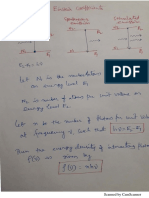 Einstein Coefficients
Spontaneous
emission
Stimulated
emission
E₂
E₂
E₁
E₁
Let N₁ is the
on energy level E₁
N₂ is number of atoms per unit volume on
energy level E₂
Let n be the number of photons per unit volume
at frequency ν such that hν = E₂ - E₁
Then the energy density of interacting photons
ρ(ν) is given by
ρ(ν) = nhν
Scanned by CamScanner